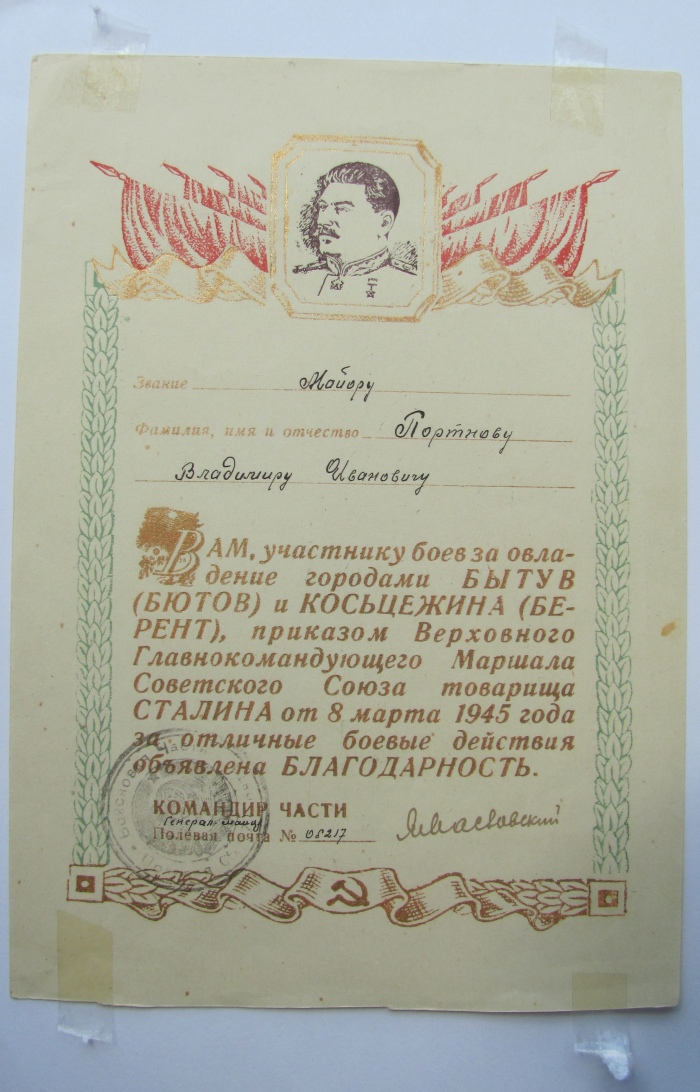 Звание Майору
Фамилия, имя и отчество Портнову
Владимиру Ивановичу
ВАМ, участнику боев за овла-
дение городами БЫТУВ
(БЮТОВ) и КОСЬЦЕЖИНА (БЕ-
РЕНТ), приказом Верховного
Главнокомандующего Маршала
Советского Союза товарища
СТАЛИНА от 8 марта 1945 года
за отличные боевые действия
объявлена БЛАГОДАРНОСТЬ.
КОМАНДИР ЧАСТИ
Генерал-майор
Полевая почта № 08217